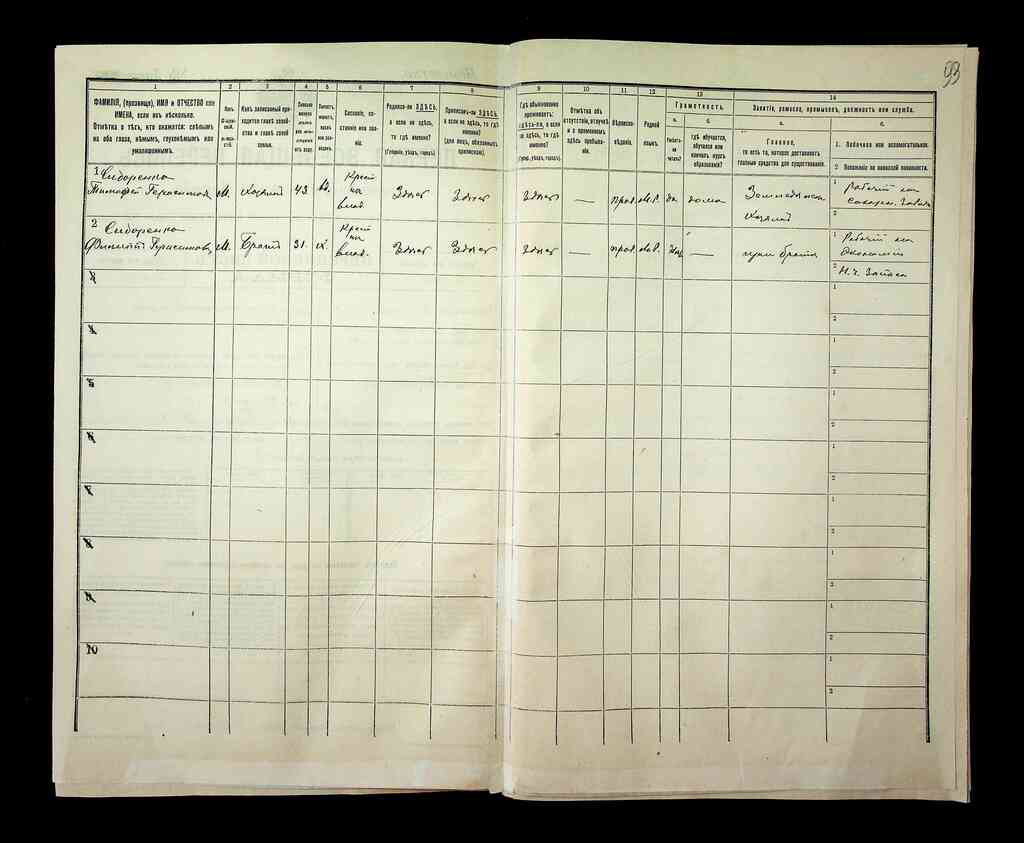 93
1 2 3 4 5 6 7 8 9 10 11 12 13 14
ФАМИЛІЯ, (прозвище), ИМЯ и ОТЧЕСТВО или
ИМЕНА, если ихъ нѣсколько.
Отмѣтка о тѣхъ, кто окажется: слѣпымъ
на оба глаза, нѣмымъ, глухонѣмымъ или
умалишеннымъ.
Полъ.
Какъ записанный приходится главѣ хозяйства и главѣ своей семьи.
Сословіе, состояніе или званіе.
Родился-ли ЗДѢСЬ,
а если не здѣсь,
то гдѣ именно?
(Губернія, уѣздъ, городъ)
Приписанъ-ли ЗДѢСЬ,
а если не здѣсь, то гдѣ
именно?
(для лицъ, обязанныхъ
припискою).
Гдѣ обыкновенно
проживаетъ:
здѣсь-ли, а если
не здѣсь, то гдѣ
именно?
(Губер., уѣздъ, городъ).
Отмѣтка объ
отсутствіи, отлучкѣ
и о временномъ
здѣсь пребываніи.
Вѣроисповѣданіе.
Родной
языкъ.
Грамотность.
а. б.
Умѣетъ-ли
читать?
гдѣ обучается,
обучался или
кончилъ курсъ
образованія?
Занятіе, ремесло, промыселъ, должность или служба.
а. б.
Главное,
то есть то, которое доставляетъ
главныя средства для существованія.
1. Побочное или вспомогательное.
2. Положеніе по воинской повинности.
1 Сидоренко
Тимофей Герасимов М. хозяин 43 Крест из влад. Здесь Здесь Здесь — прав. М.Р. да дома Земледелец хозяин
1 Рабочий на
сахарн. заводе
2
2 Сидоренко
Филипп Герасимов М. Брат 31 х. Крест из влад. Здесь Здесь Здесь — прав. М.Р. Нет — при брате
1 Рабочий на
экономии
2 Н. ч. запаса
3
1
2
4
1
2
5
1
2
6
1
2
7
1
2
8
1
2
9
1
2
10
1
2